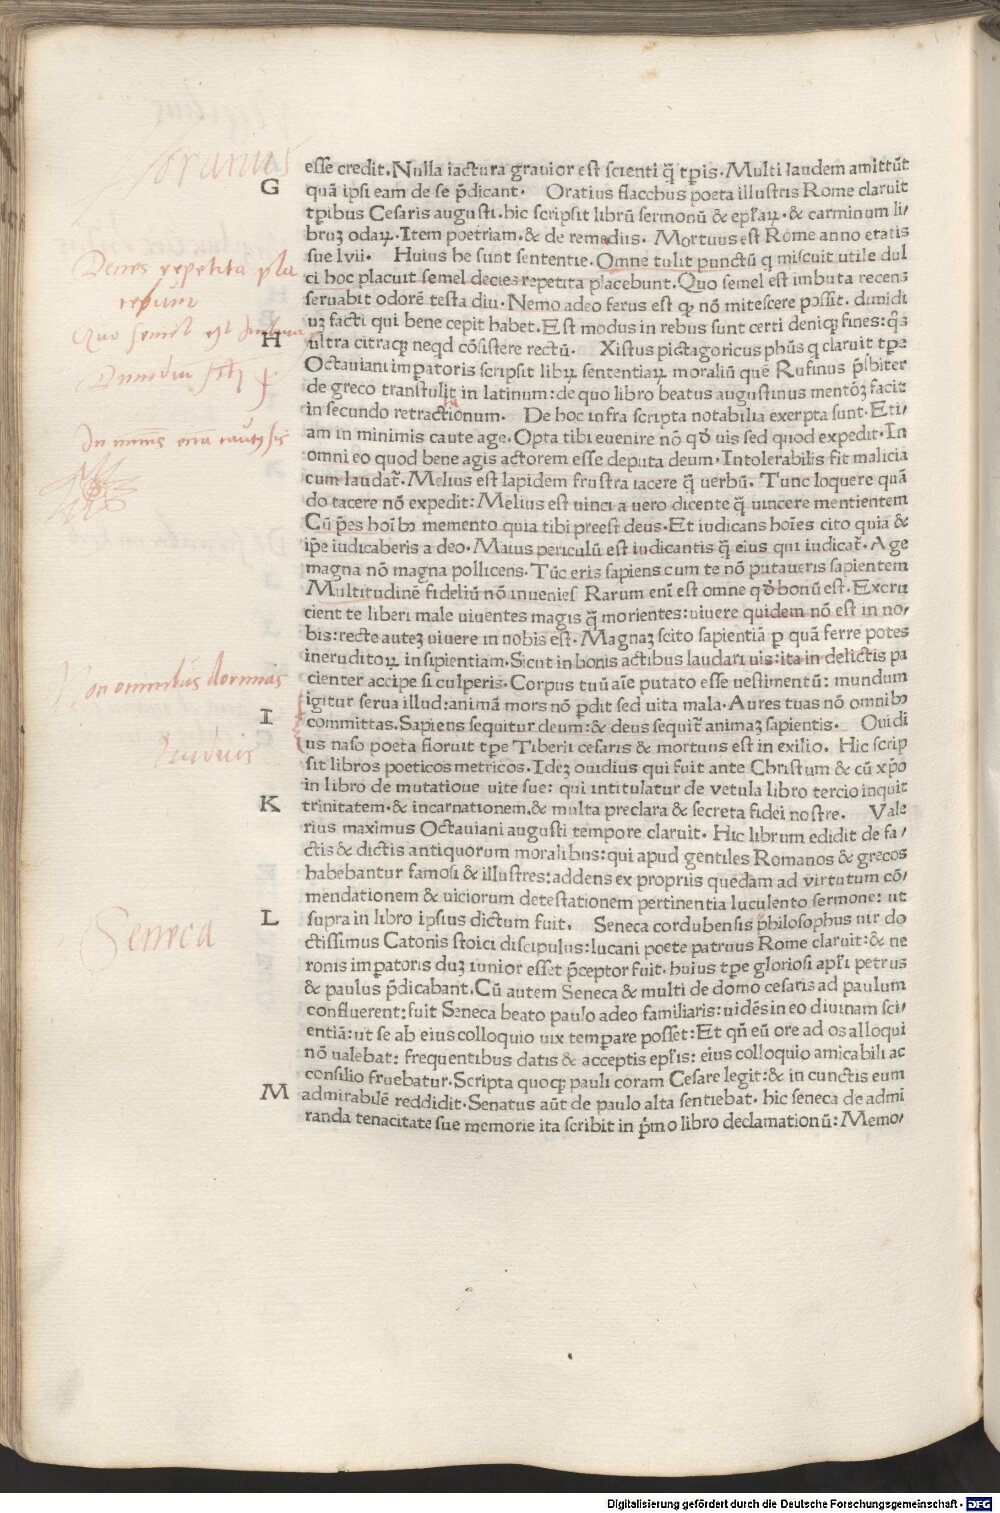 Oratius
esse credit. Nulla iactura grauior est scienti q̄ tp̄is. Multi laudem amittūt
G
quā ipsi eam de se p̄dicant. Oratius flacchus poeta illustris Rome claruit
tp̄ibus Cesaris augusti. hic scripsit librū sermonū & ep̄laꝝ. & carminum li/
bruꝫ odaꝝ. Item poetriam. & de remediis. Mortuus est Rome anno etatis
sue lvii. Huius he sunt sententie. Omne tulit punctū q miscuit utile dul
Decies repetita pla
ci hoc placuit semel decies repetita placebunt. Quo semel est imbuta recens
cebunt
seruabit odorē testa diu. Nemo adeo ferus est qꝫ nō mitescere possit. dimidi
Quo semel est imbuta
uꝫ facti qui bene cepit habet. Est modus in rebus sunt certi deniqꝫ fines: q̄s
H
ultra citraqꝫ neqd cōsistere rectū. Xistus pictagoricus ph̄us q claruit tp̄e
Octauiani imꝑatoris scripsit libꝝ sententiaꝝ moraliū quē Rufinus p̄sbiter
de greco transtulit in latinum: de quo libro beatus augustinus mentōꝫ facit
in secundo retractionum. De hoc infra scripta notabilia exerpta sunt. Eti/
In minimis
am in minimis caute age. Opta tibi euenire nō qđ uis sed quod expedit. In
omni eo quod bene agis actorem esse deputa deum. Intolerabilis fit malicia
cum laudat̄. Melius est lapidem frustra iacere q̄ uerbū. Tunc loquere quā
do tacere nō expedit: Melius est uinci a uero dicente q̄ uincere mentientem
Cū p̄es hoībꝫ memento quia tibi preest deus. Et iudicans hoīes cito quia &
ip̄e iudicaberis a deo. Maius periculū est iudicantis q̄ eius qui iudicat̄. Age
magna nō magna pollicens. Tūc eris sapiens cum te nō putaueris sapientem
Multitudinē fideliū nō inuenies Rarum enī est omne qđ bonū est. Excru
cient te liberi male uiuentes magis q̄ morientes: uiuere quidem nō est in no/
bis: recte auteꝫ uiuere in nobis est. Magnaꝫ scito sapientiā ꝑ quā ferre potes
ineruditoꝝ insipientiam. Sicut in bonis actibus laudari uis: ita in delictis pa
Non omnibus dormias
cienter accipe si culperis. Corpus tuū aīe putato esse uestimentū: mundum
igitur serua illud: animā mors nō ꝑdit sed uita mala. Aures tuas nō omnibꝫ
I
committas. Sapiens sequitur deum: & deus sequit̄ animaꝫ sapientis. Ouidi
Ouidius
us naso poeta floruit tp̄e Tiberii cesaris & mortuus est in exilio. Hic scrip
sit libros poeticos metricos. Ideꝫ ouidius qui fuit ante Christum & cū xp̄o
in libro de mutatioue uite sue: qui intitulatur de vetula libro tercio inquit
K
trinitatem. & incarnationem. & multa preclara & secreta fidei nostre. Vale
rius maximus Octauiani augusti tempore claruit. Hic librum edidit de fa/
ctis & dictis antiquorum moralibus: qui apud gentiles Romanos & grecos
habebantur famosi & illustres: addens ex propriis quedam ad virtutum cō/
mendationem & uiciorum detestationem pertinentia luculento sermone: ut
L
supra in libro ipsius dictum fuit. Seneca cordubensis philosophus uir do
Seneca
ctissimus Catonis stoici discipulus: lucani poete patruus Rome claruit: & ne
ronis imꝑatoris duꝫ iunior esset p̄ceptor fuit. huius tp̄e gloriosi apl̄i petrus
& paulus p̄dicabant. Cū autem Seneca & multi de domo cesaris ad paulum
confluerent: fuit Seneca beato paulo adeo familiaris: uidēs in eo diuinam sci/
entiā: ut se ab eius colloquio uix temꝑare posset: Et qn̄ eū ore ad os alloqui
nō ualebat: frequentibus datis & acceptis epl̄is: eius colloquio amicabili ac
consilio fruebatur. Scripta quoqꝫ pauli coram Cesare legit: & in cunctis eum
M
admirabilē reddidit. Senatus aūt de paulo alta sentiebat. hic seneca de admi
randa tenacitate sue memorie ita scribit in p̄mo libro declamationū: Memo/
Digitalisierung gefördert durch die Deutsche Forschungsgemeinschaft - DFG